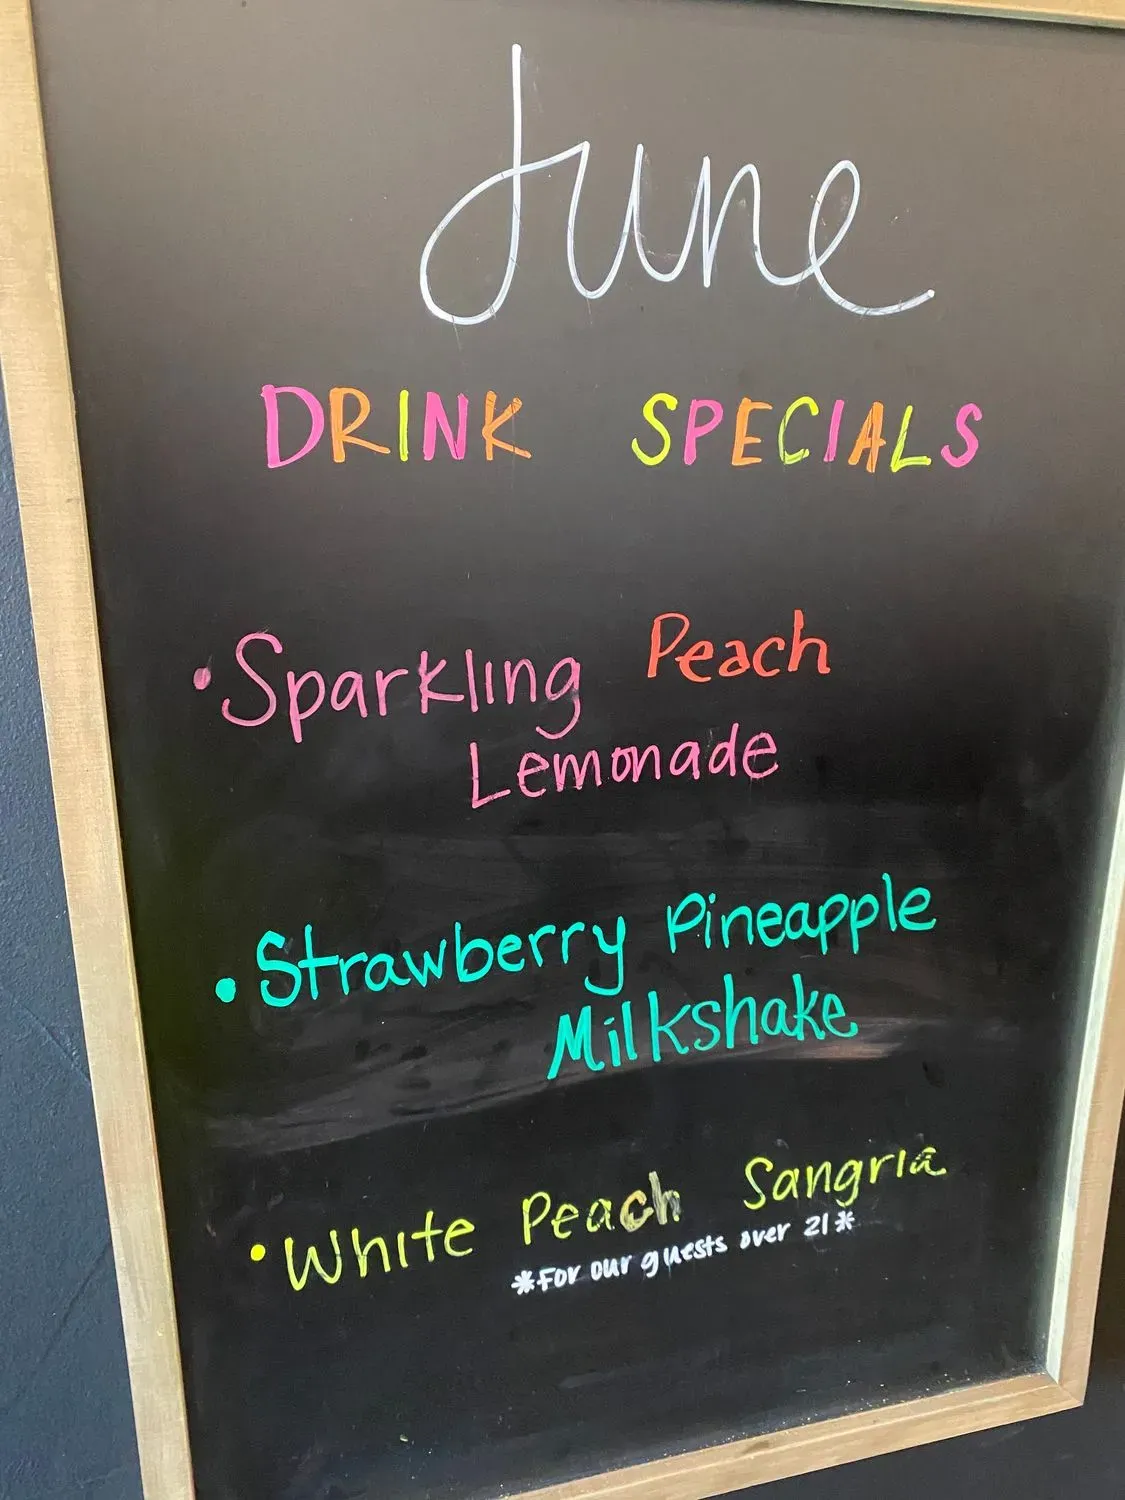 June
DRINK SPECIALS
• Sparkling Peach
Lemonade
• Strawberry Pineapple
Milkshake
• White Peach Sangria
*For our guests over 21*